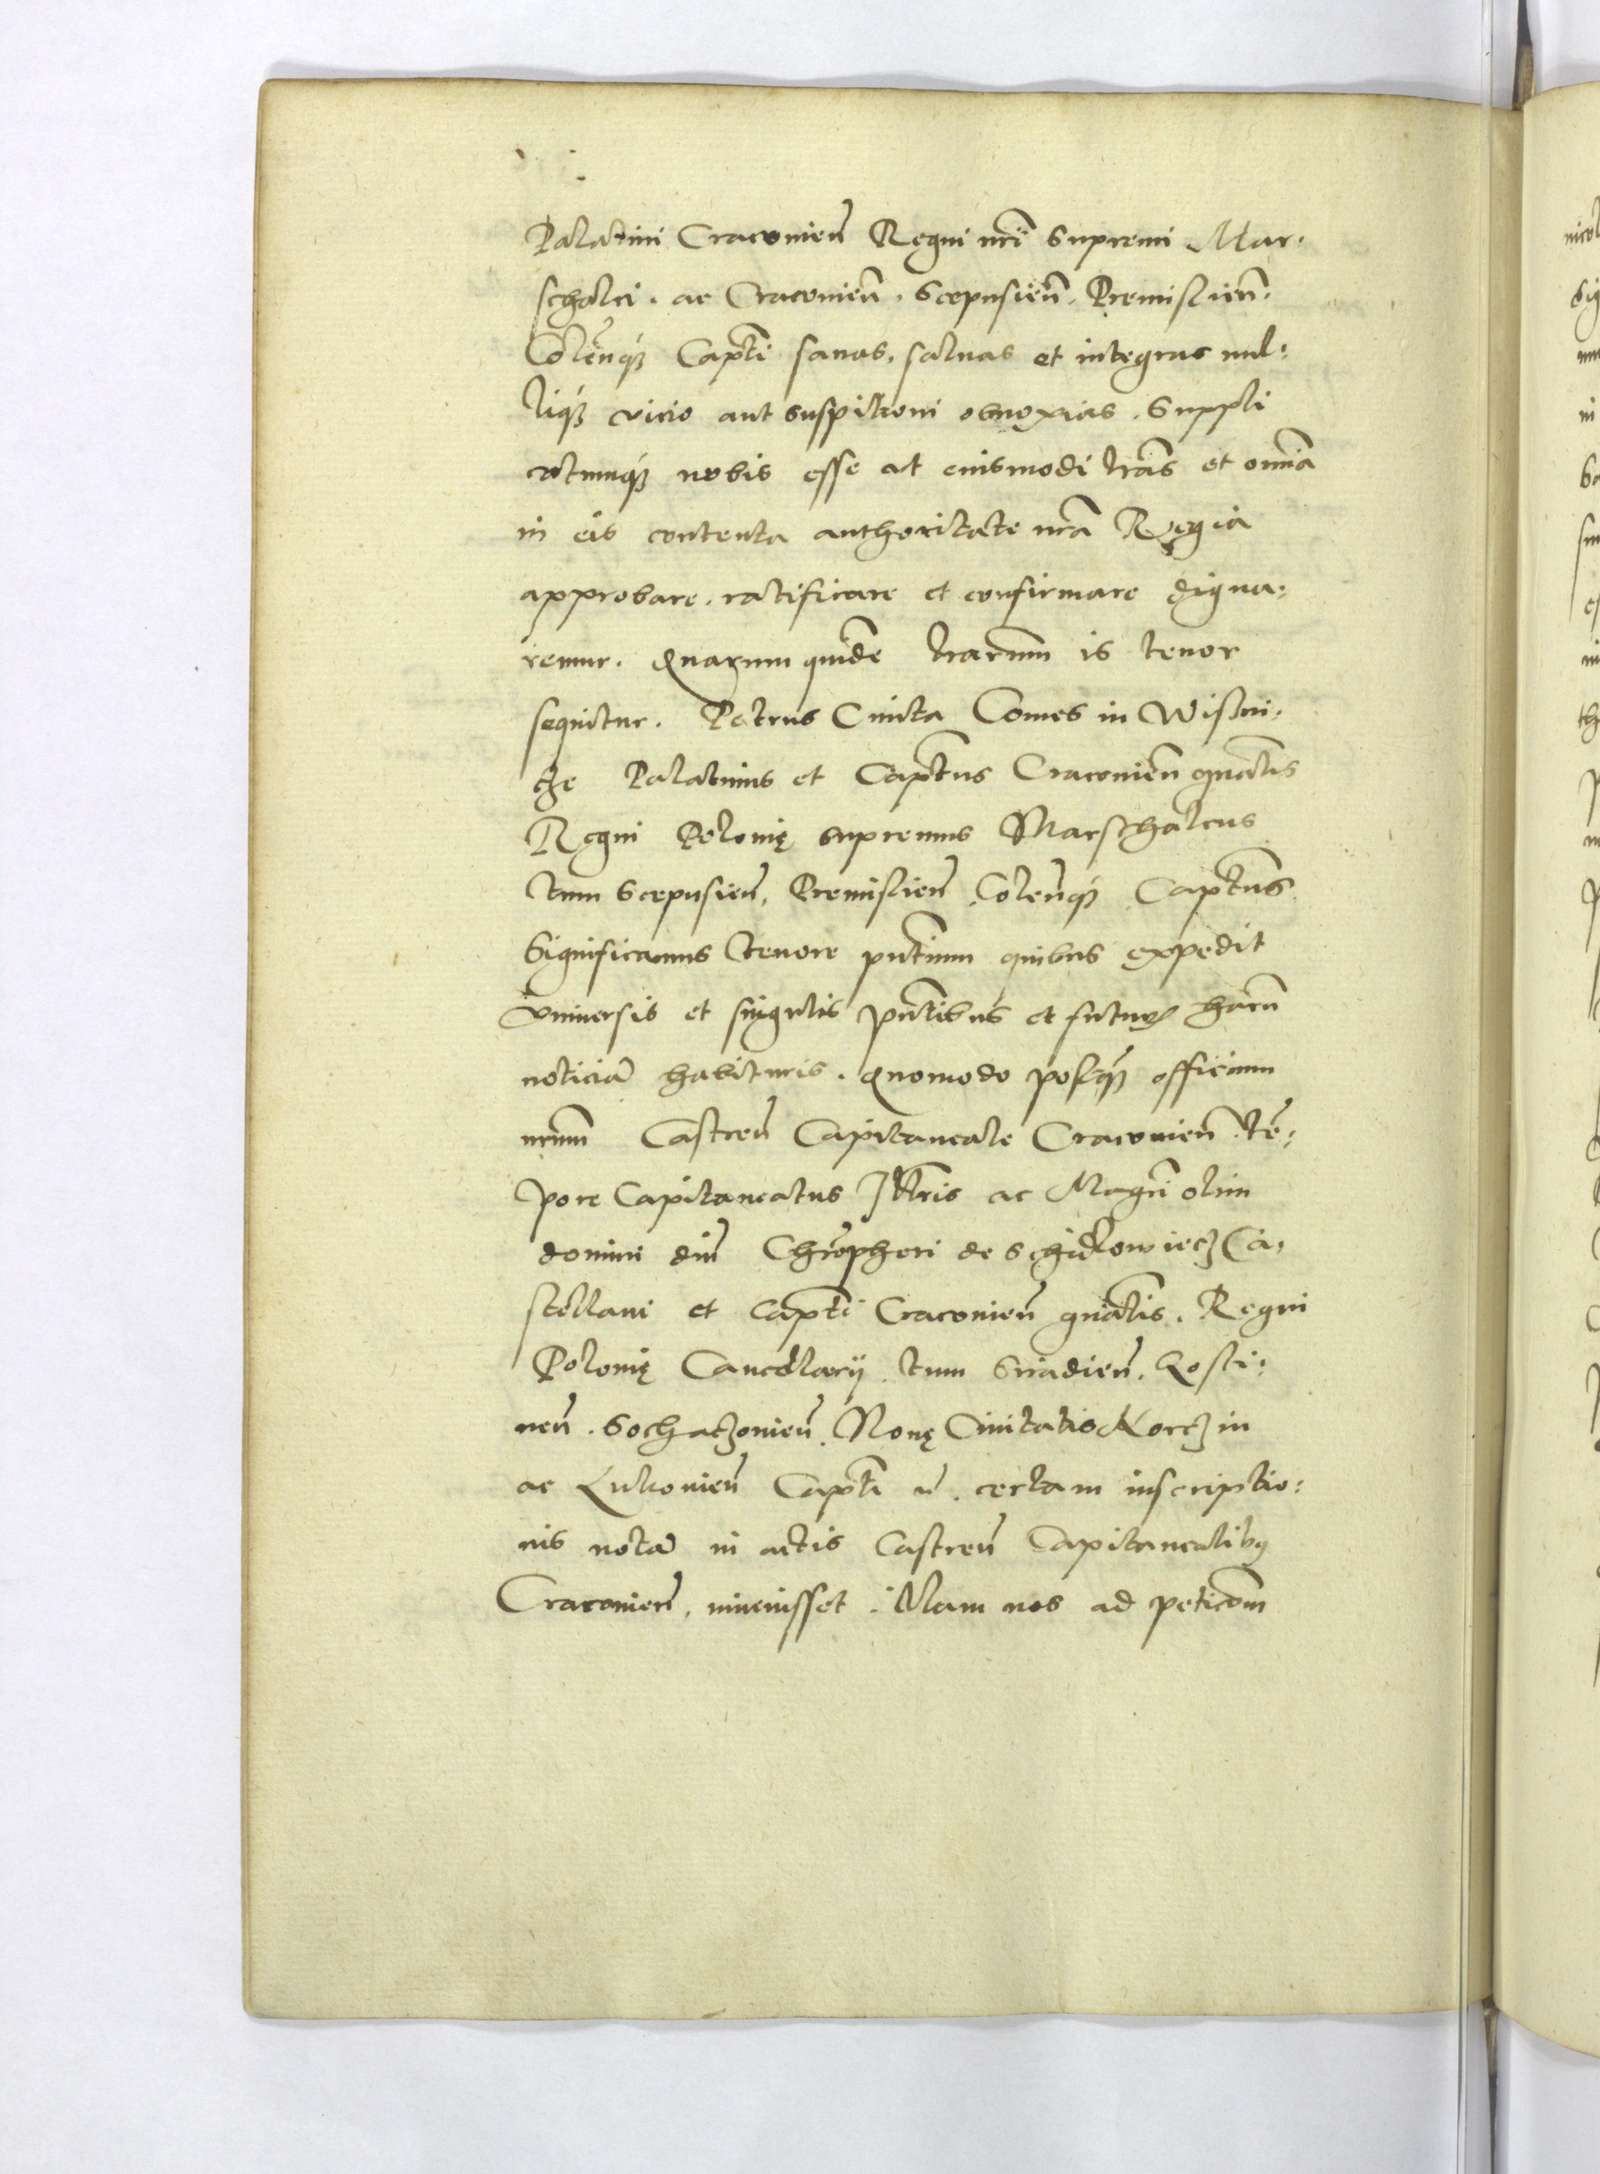 Palatini Cracouień Regni nr̃i Supremi Mar-
schalci. ac Cracouień. Scepusień. Premislień.
Coleńq́ȝ Capt̃i sanas, saluas et integras nul-
liq́ȝ vicio aut suspitioni obnoxias. Suppli
catumq́ȝ nobis esse ut eiusmodi lr̃as et omĩa
in eis contenta authoritate nr̃a Regia
approbare, ratificare et confirmare digna-
remur. Quarum quidẽ lr̃arum is tenor
sequitur. Petrus Cmita Comes in Wisni-
cze Palatinus et Capt̃us Cracouień gnãlis
Regni Polonię supremus Marschalcus
tum Scepusień, Premislień, Coleńq́ȝ Capt̃us
Significamus tenore pñtium quibus expedit
vniversis et singulis pñtibus et futuris harũ
noticiã habituris. Quomodo postq̃ȝ officium
nr̃um Castreń Capitaneale Cracouień tẽ-
pore Capitaneatus Ill̃ris ac Magci olim
domini dñi Chrõpheri de Schidlowiecz Ca-
stellani et Capt̃i Cracouień gnãlis. Regni
Polonię Cancellarij tum Siradień, Gosti-
neń. Sochaczouień. Nouę Ciuitatis Korczin
ac Lukouień Capt̃i certam inscriptio-
nis notã in actis Castreń Capitanealibꝰ
Cracouień, inuenisset. Illam nos ad peticõm